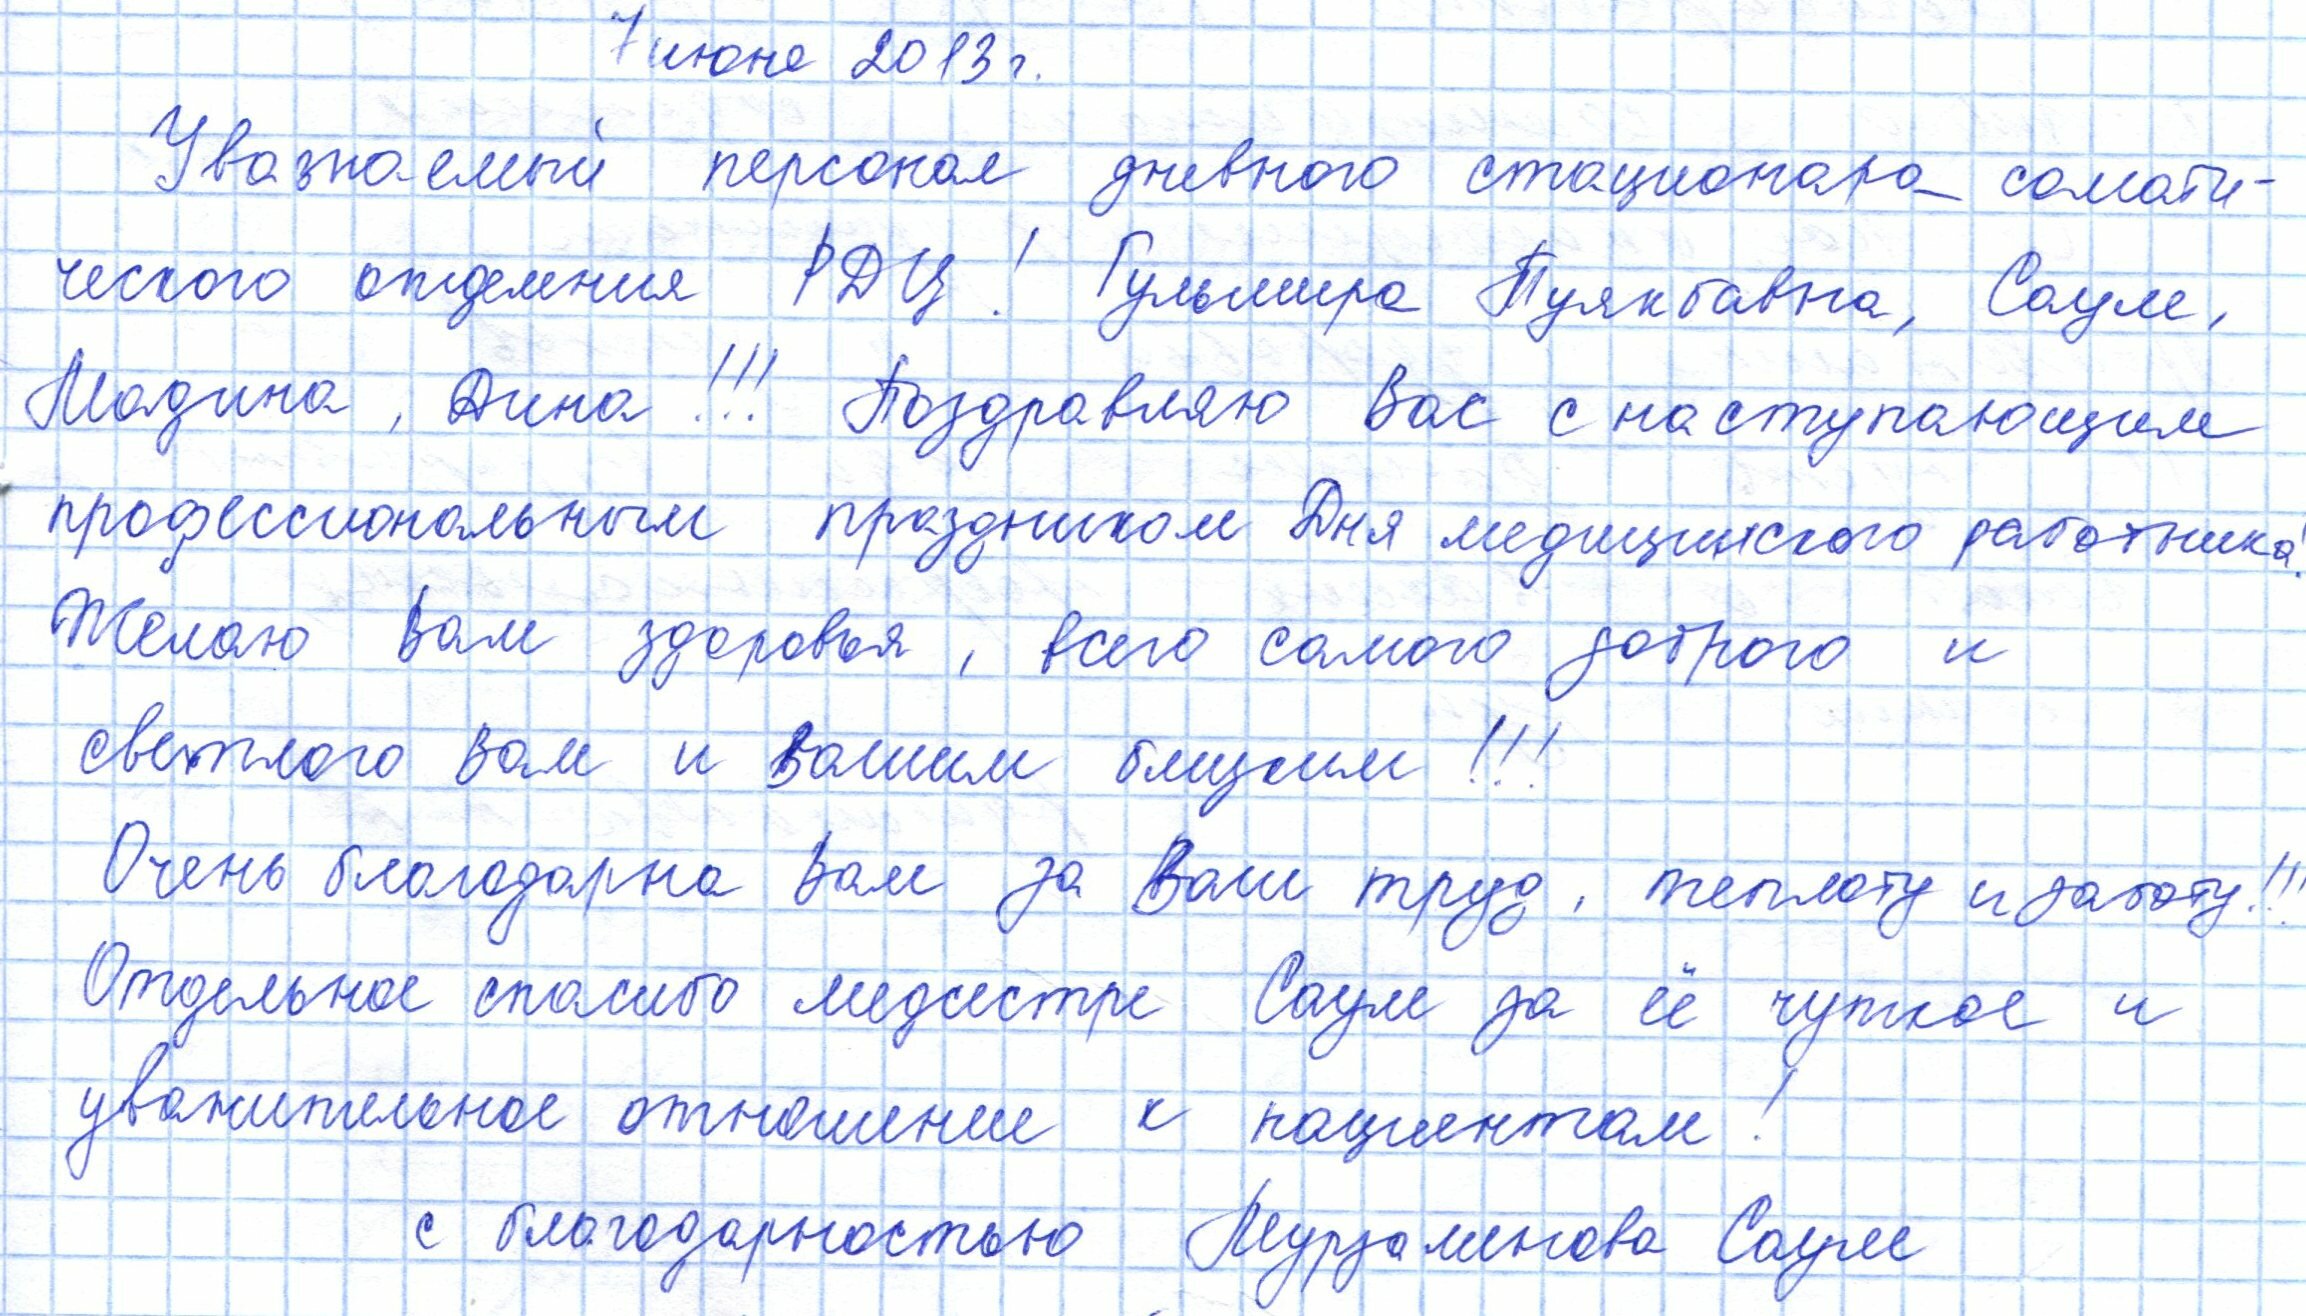 7 июня 2013 г.
Уважаемый персонал дневного стационара сомати-
ческого отделения РДЦ! Гульмира Пуякбавна, Сауле,
Мадина, Дина!!! Поздравляю Вас с наступающим
профессиональным праздником Дня медицинского работника!
Желаю Вам здоровья, всего самого доброго и
светлого Вам и Вашим близким!!!
Очень благодарна Вам за Ваш труд, теплоту и заботу!!!
Отдельное спасибо медсестре Сауле за её чуткое и
уважительное отношение к пациентам!
с благодарностью Мурзаменова Сауле